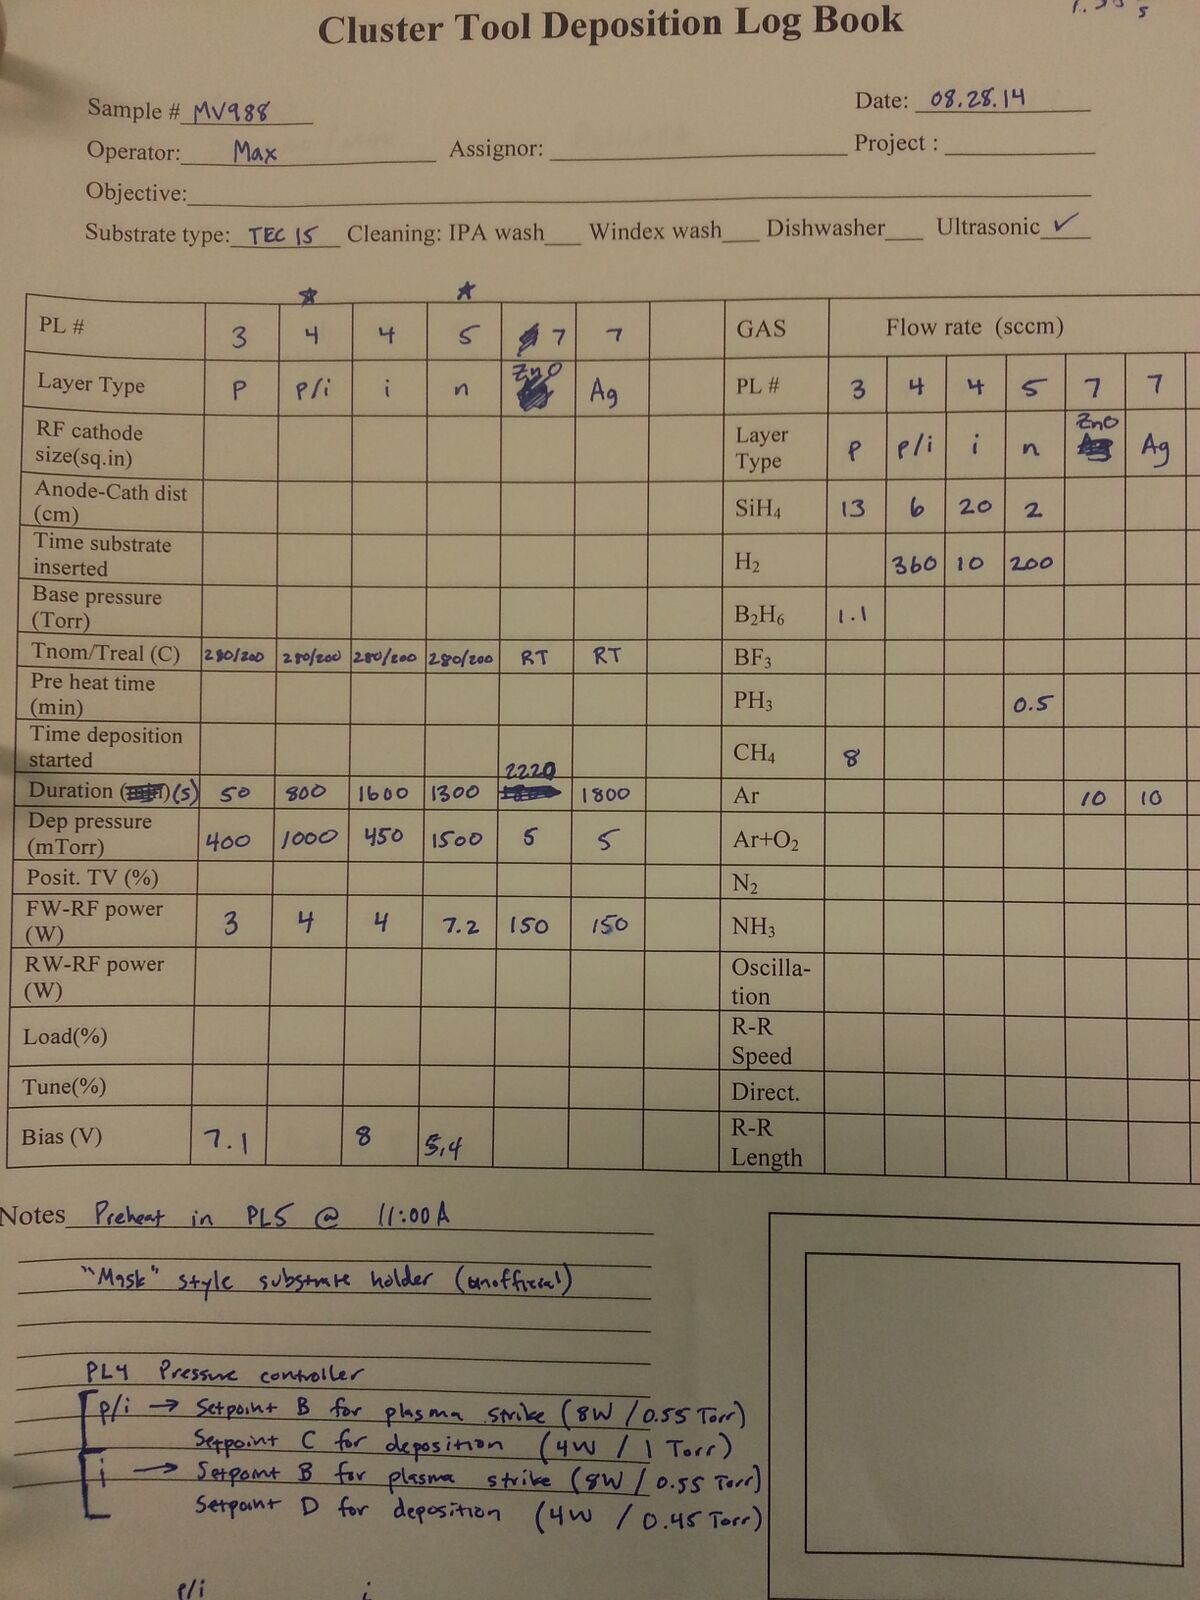 Cluster Tool Deposition Log Book
Sample # MV988 Date: 08.28.14
Operator: Max Assignor: Project :
Objective:
Substrate type: TEC 15 Cleaning: IPA wash Windex wash Dishwasher Ultrasonic ✓
PL # 3 4 4 5 7 7 GAS Flow rate (sccm)
Layer Type P P/i i n ZnO Ag PL # 3 4 4 5 7 7
RF cathode size(sq.in) Layer Type P P/i i n ZnO Ag
Anode-Cath dist (cm) SiH4 13 6 20 2
Time substrate inserted H2 360 10 200
Base pressure (Torr) B2H6 1.1
Tnom/Treal (C) 280/200 280/200 280/200 280/200 RT RT BF3
Pre heat time (min) PH3 0.5
Time deposition started CH4 8
Duration (s) 50 800 1600 1300 2220 1800 Ar 10 10
Dep pressure (mTorr) 400 1000 450 1500 5 5 Ar+O2
Posit. TV (%) N2
FW-RF power (W) 3 4 4 7.2 150 150 NH3
RW-RF power (W) Oscilla-tion
Load(%) R-R Speed
Tune(%) Direct.
Bias (V) 7.1 8 5.4 R-R Length
Notes Preheat in PL5 @ 11:00 A
"Mask" style substrate holder (unofficial)
PL4 Pressure controller
p/i → Setpoint B for plasma strike (8W / 0.55 Torr)
Setpoint C for deposition (4W / 1 Torr)
i → Setpoint B for plasma strike (8W / 0.55 Torr)
Setpoint D for deposition (4W / 0.45 Torr)
p/i i